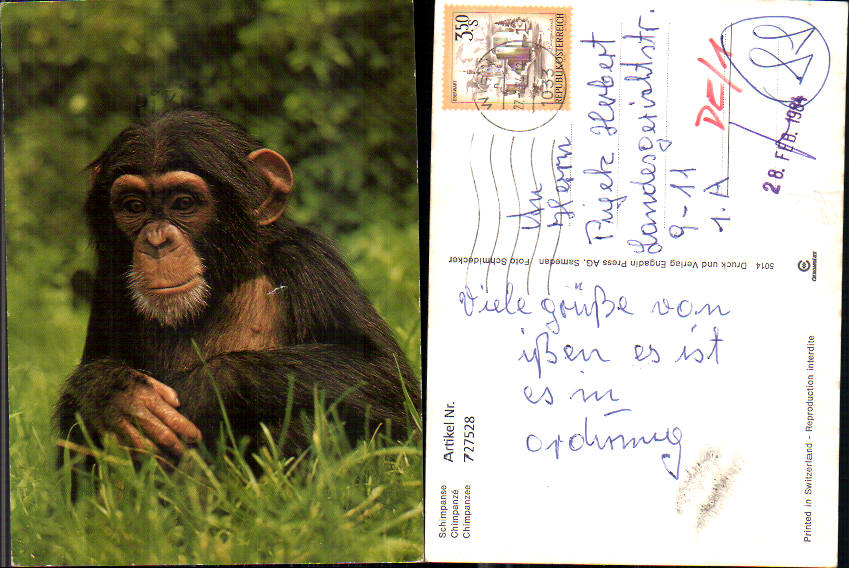 3.50 S
REPUBLIK ÖSTERREICH
103
An
Herrn
Herbert
Landesgerichtsstr.
9-11
1. A
DE/1
28. FEB. 1984
5014 Druck und Verlag Engadin Press AG, Samedan Foto Schmidecker
Viele grüße von
ißen es ist
es in
ordnung
Artikel Nr.
727528
Schimpanse
Chimpanzé
Chimpanzee
Printed in Switzerland - Reproduction interdite